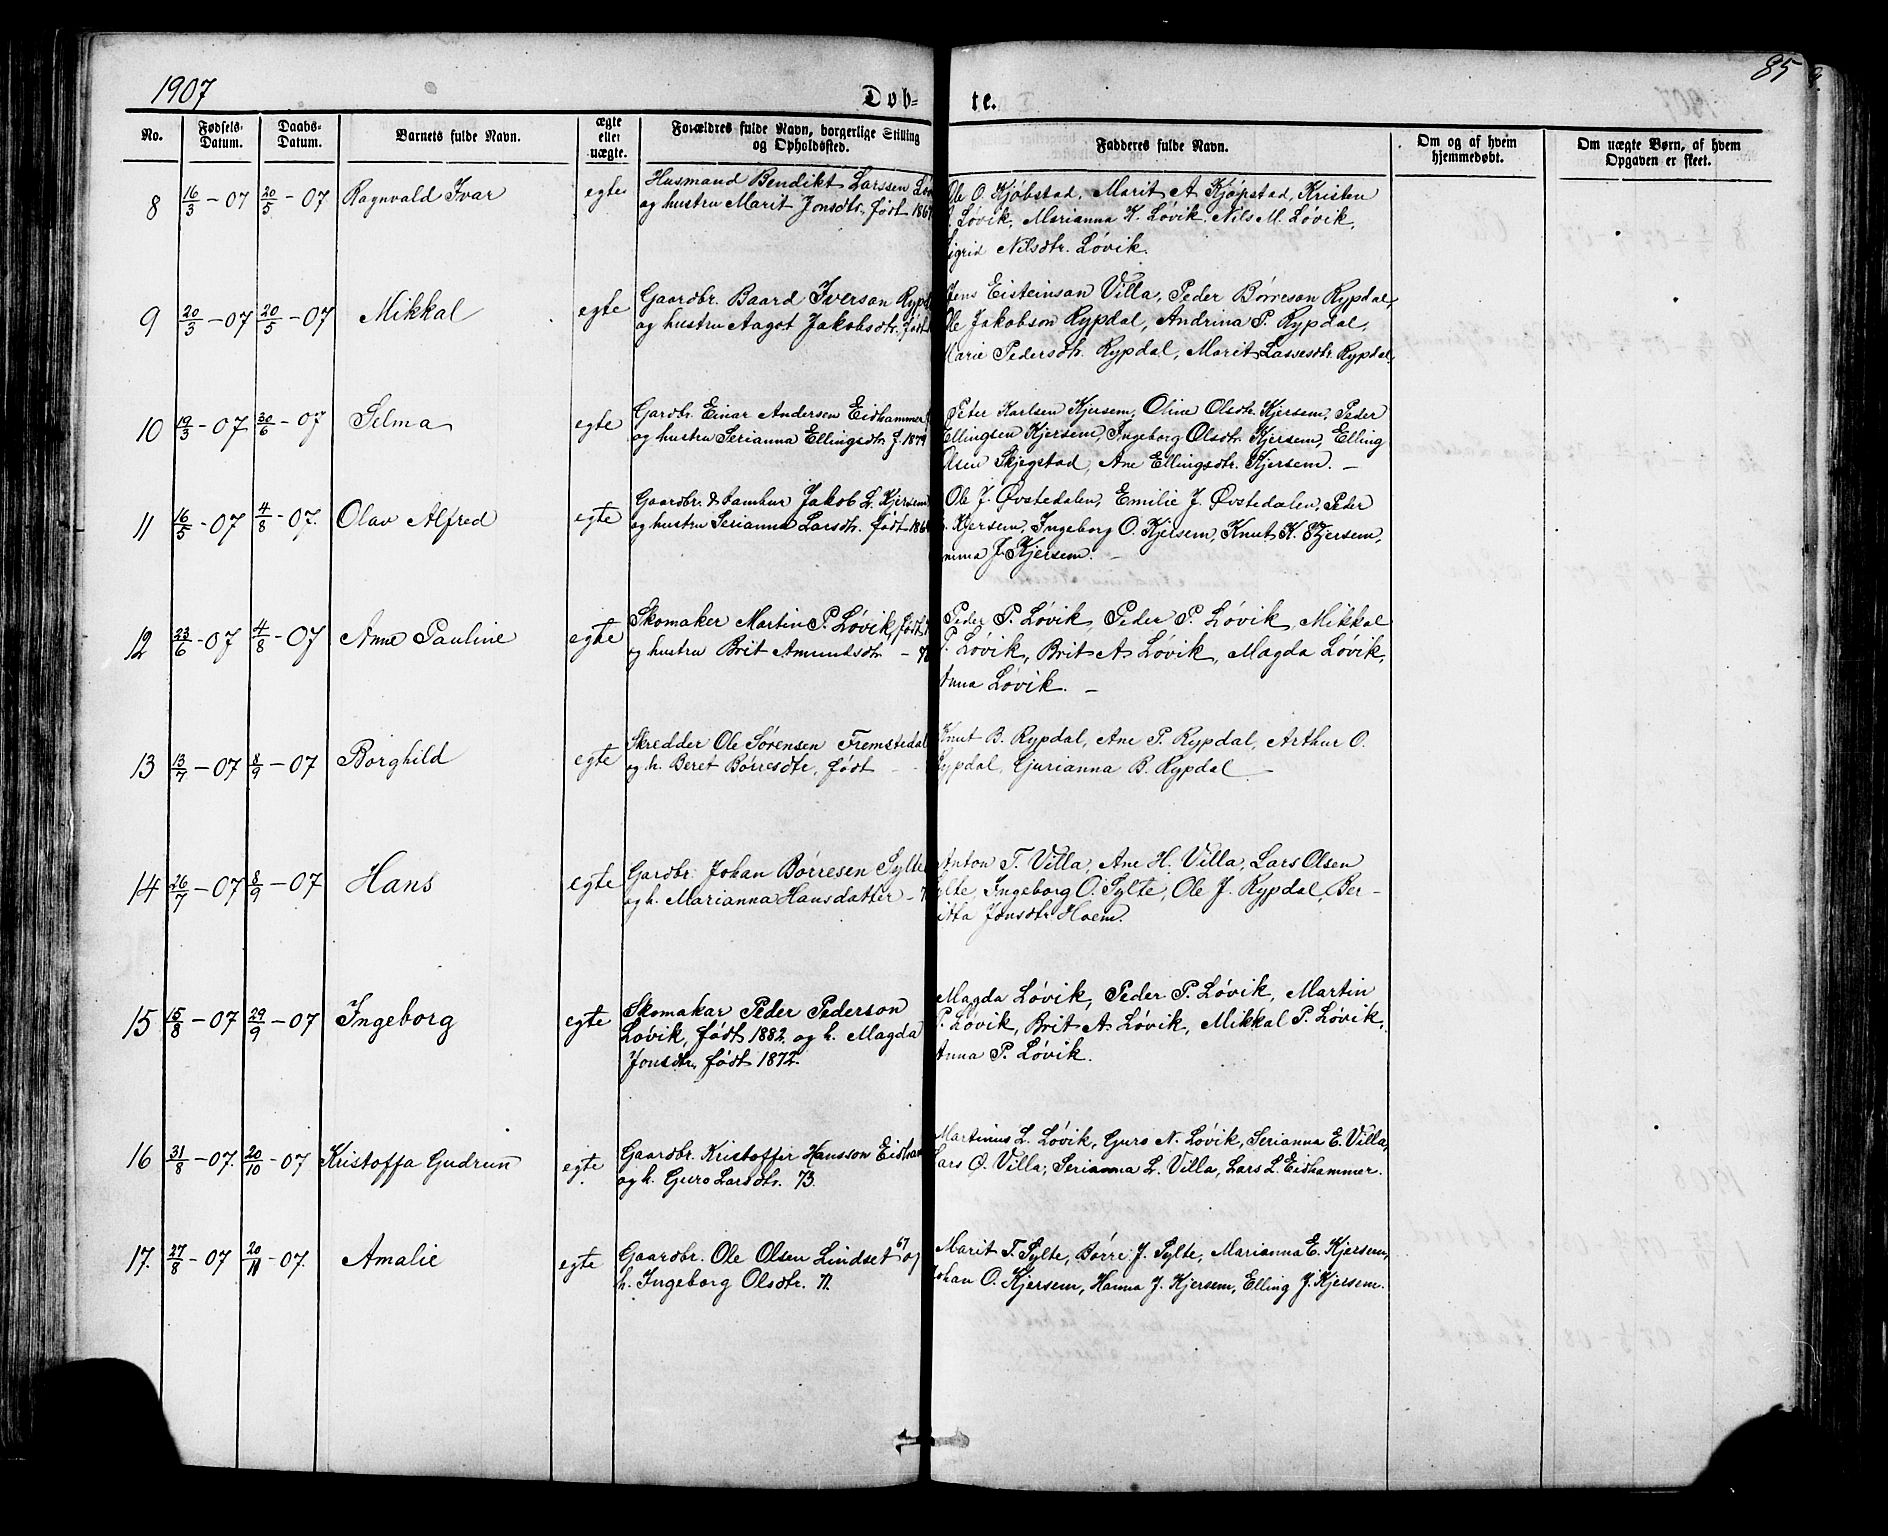 1907
Døb-
te.
85
No.
Fødsels-
Datum.
Daabs-
Datum.
Barnets fulde Navn.
ægte
eller
uægte.
Forældres fulde Navn, borgerlige Stilling
og Opholdsted.
Fadderes fulde Navn.
Om og af hvem
hjemmedøbt.
Om uægte Børn, af hvem
Opgaven er skeet.
8 16/3 - 07 20/5 - 07 Ragnvald Ivar egte
Husmand Bendikt Larssen
og hustru Marit Jonsdtr. født
Ole O. Kjøbstad, Marit A Kjøpstad, Kristen
Løvik, Marianna K. Løvik, Nils M. Løvik,
Nilsdtr. Løvik.
9 20/3 - 07 20/5 - 07 Mikkal egte
Gaardbr. Baard Iverson
og hustru Aagot Jakobsdtr. født
Jens Eisteinsøn Villa, Peder Børreson Rypdal,
Ole Jakobson Rypdal, Andrina P. Rypdal,
Marie Pedersdtr. Rypdal, Marit Lassesdtr. Rypdal.
10 19/3 - 07 30/6 - 07 Selma egte
Gardbr. Einar Andersen Eidhammer
og hustru Serianna Ellingsdtr. f. 1879
Peter Karlsen Kjersem, Oline Olsdtr. Kjersem, Peder
Ellingsen Kjersem, Ingeborg Olsdtr. Kjersem, Elling
Olsen Skjegstad, Ane Ellingsdtr. Kjersem. -
11 16/5 - 07 4/8 - 07. Olav Alfred egte
Gaardbr. & Jakob L. Kjersem
og hustru Serianna Larsdtr. født
Ole J. Øvstedalen, Emilie J. Øvstedalen, Peder
Kjersem, Ingeborg O. Kjersem, Knut K. Kjersem,
J. Kjersem. -
12 23/6 - 07 4/8 - 07 Anne Pauline egte
Skomaker Martin P. Løvik, født
og hustru Brit Amundsdtr -
Peder P. Løvik, Peder P. Løvik, Mikkal
P. Løvik, Brit A Løvik, Magda Løvik,
Anna Løvik. -
13 13/7 - 07 8/9 - 07 Borghild egte
Skredder Ole Sørensen Fremstedal
og h. Beret Børresdtr, født - -
Knut B. Rypdal, Ane P. Rypdal, Arthur O.
Rypdal, Gjurianna B. Rypdal -
14 26/7 - 07 8/9 - 07 Hans egte
Gardbr. Johan Børresen Sylte
og h. Marianna Hansdatter -
Anton T. Villa, Ane H. Villa, Lars Olsen
Sylte, Ingeborg O. Sylte, Ole J. Rypdal, Ber-
itta Jonsdtr. Hoem.
15 15/8 - 07 29/9 - 07 Ingeborg egte
Skomakar Peder Pederson
Løvik, født 1882 og h. Magda
Jonsdtr, født 1872.
Magda Løvik, Peder P. Løvik, Martin
P. Løvik, Brit A Løvik, Mikkal P. Løvik,
Anna P. Løvik.
16 31/8 - 07. 20/10 - 07 Kristoffa Gudrun egte.
Gaardbr. Kristoffer Hansson
og h. Guro Larsdtr. 73.
Martinus L. Løvik, Guro N. Løvik, Serianna E. Villa,
Lars O. Villa, Serianna L. Villa, Lars L. Eidhammer.
17. 27/8 - 07 20/11 - 07. Amalie egte
Gaardbr. Ole Olsen Lindset 67 og
h. Ingeborg Olsdtr. 71.
Marit T. Sylte, Børre J. Sylte, Marianna E. Kjersem,
Johan O. Kjersem, Hanna J. Kjersem, Elling J. Kjersem.